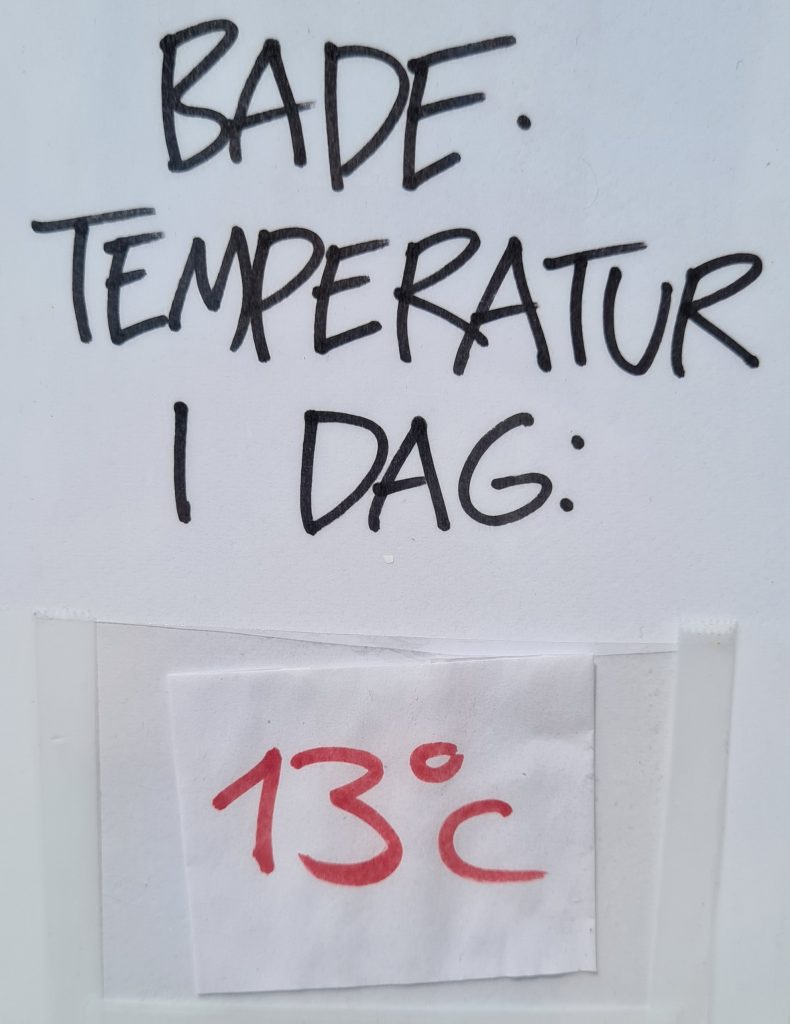 BADE.
TEMPERATUR
I DAG:
13°C